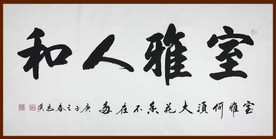 室雅人和
室雅何須大花香不在多庚子之春